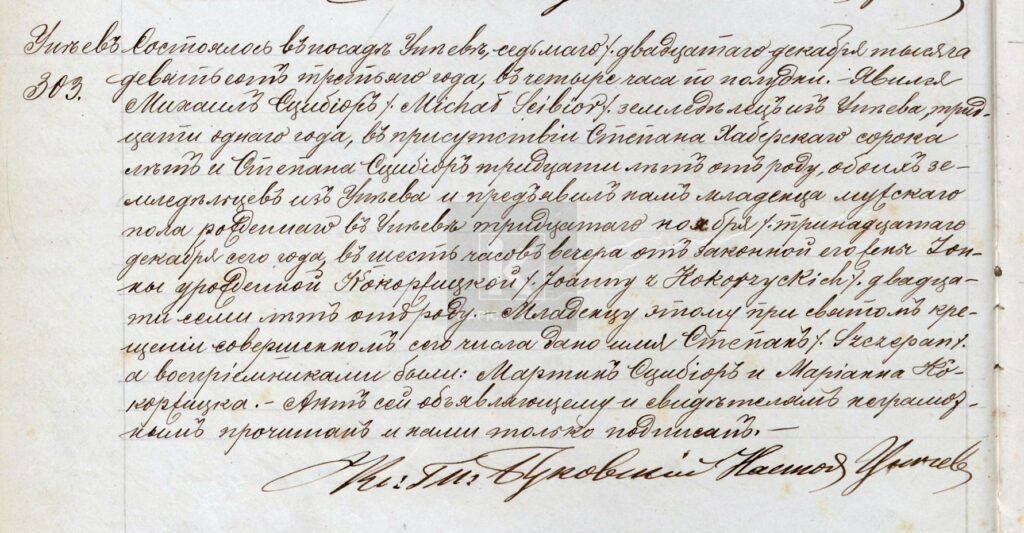 Унѣевъ Состоялось въ посадѣ Унѣевѣ, седьмаго /: двадцатаго декабря тысяча
303. девятьсотъ третьяго года, въ четыре часа по полудни. Явился
Михаилъ Сцибіоръ /: Michał Scibior /: земледѣлецъ изъ Унѣева, трид-
цати однаго года, въ присутствіи Степана Хаберскаго сорока
лѣтъ и Степана Сцибіоръ тридцати лѣтъ отъ роду, обоихъ зе-
мледѣльцевъ изъ Унѣева и предъявилъ намъ младенца мужскаго
пола рожденнаго въ Унѣевѣ тридцатаго ноября /: тринадцатаго
декабря сего года, въ шесть часовъ вечера отъ законной его жены Іоан-
ны урожденной Кокоржицкой /: Joanny z Kokorzyckich /: двадца-
ти семи лѣтъ отъ роду. Младенцу этому при святомъ кре-
щеніи совершенномъ сего числа дано имя Степанъ /: Szczepan /:
а воспріемниками были: Мартинъ Сцибіоръ и Маріанна Ко-
коржицка. – Актъ сей объявляющему и свидѣтелямъ неграмот-
нымъ прочитанъ и нами только подписанъ. –
Кс: Настоя